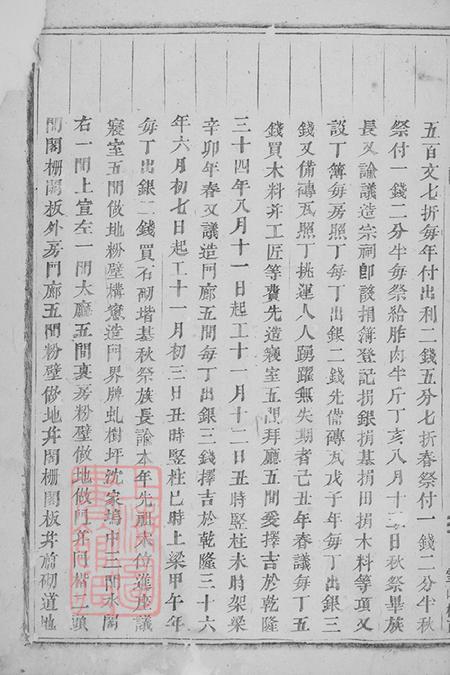 五百文七折每年付出利二錢五分七折春祭付一錢二分半秋
祭付一錢二分半每祭給胙肉半斤丁亥八月十二日秋祭畢族
長又諭議造宗祠卽設捐簿登記捐銀捐基捐田捐木料等項又
設丁簿每房照丁每丁出銀二錢先備磚瓦戊子年每丁出銀三
錢又備磚瓦照丁挑運人人踴躍無失期者己丑年春議每丁五
錢買木料并工匠等費先造寢室五間拜廳五間爰擇吉於乾隆
三十四年八月十一日起工十一月十二日丑時竪柱未時架梁
辛卯年春又議造門廊五間每丁出銀三錢擇吉於乾隆三十六
年六月初七日起工十一月初三日丑時竪柱巳時上梁甲午年
每丁出銀二錢買石砌堦基秋祭族長諭本年先祖木位進座議
寢室五間做地粉壁構窻造門界牌虬樹坪沈家塢中三間水閣
右一間上宣左一間大廳五間裏房粉壁做地做門并門樹二頭
間閣柵閣板外房門廊五間粉壁做地并閣柵閣板并前砌道地